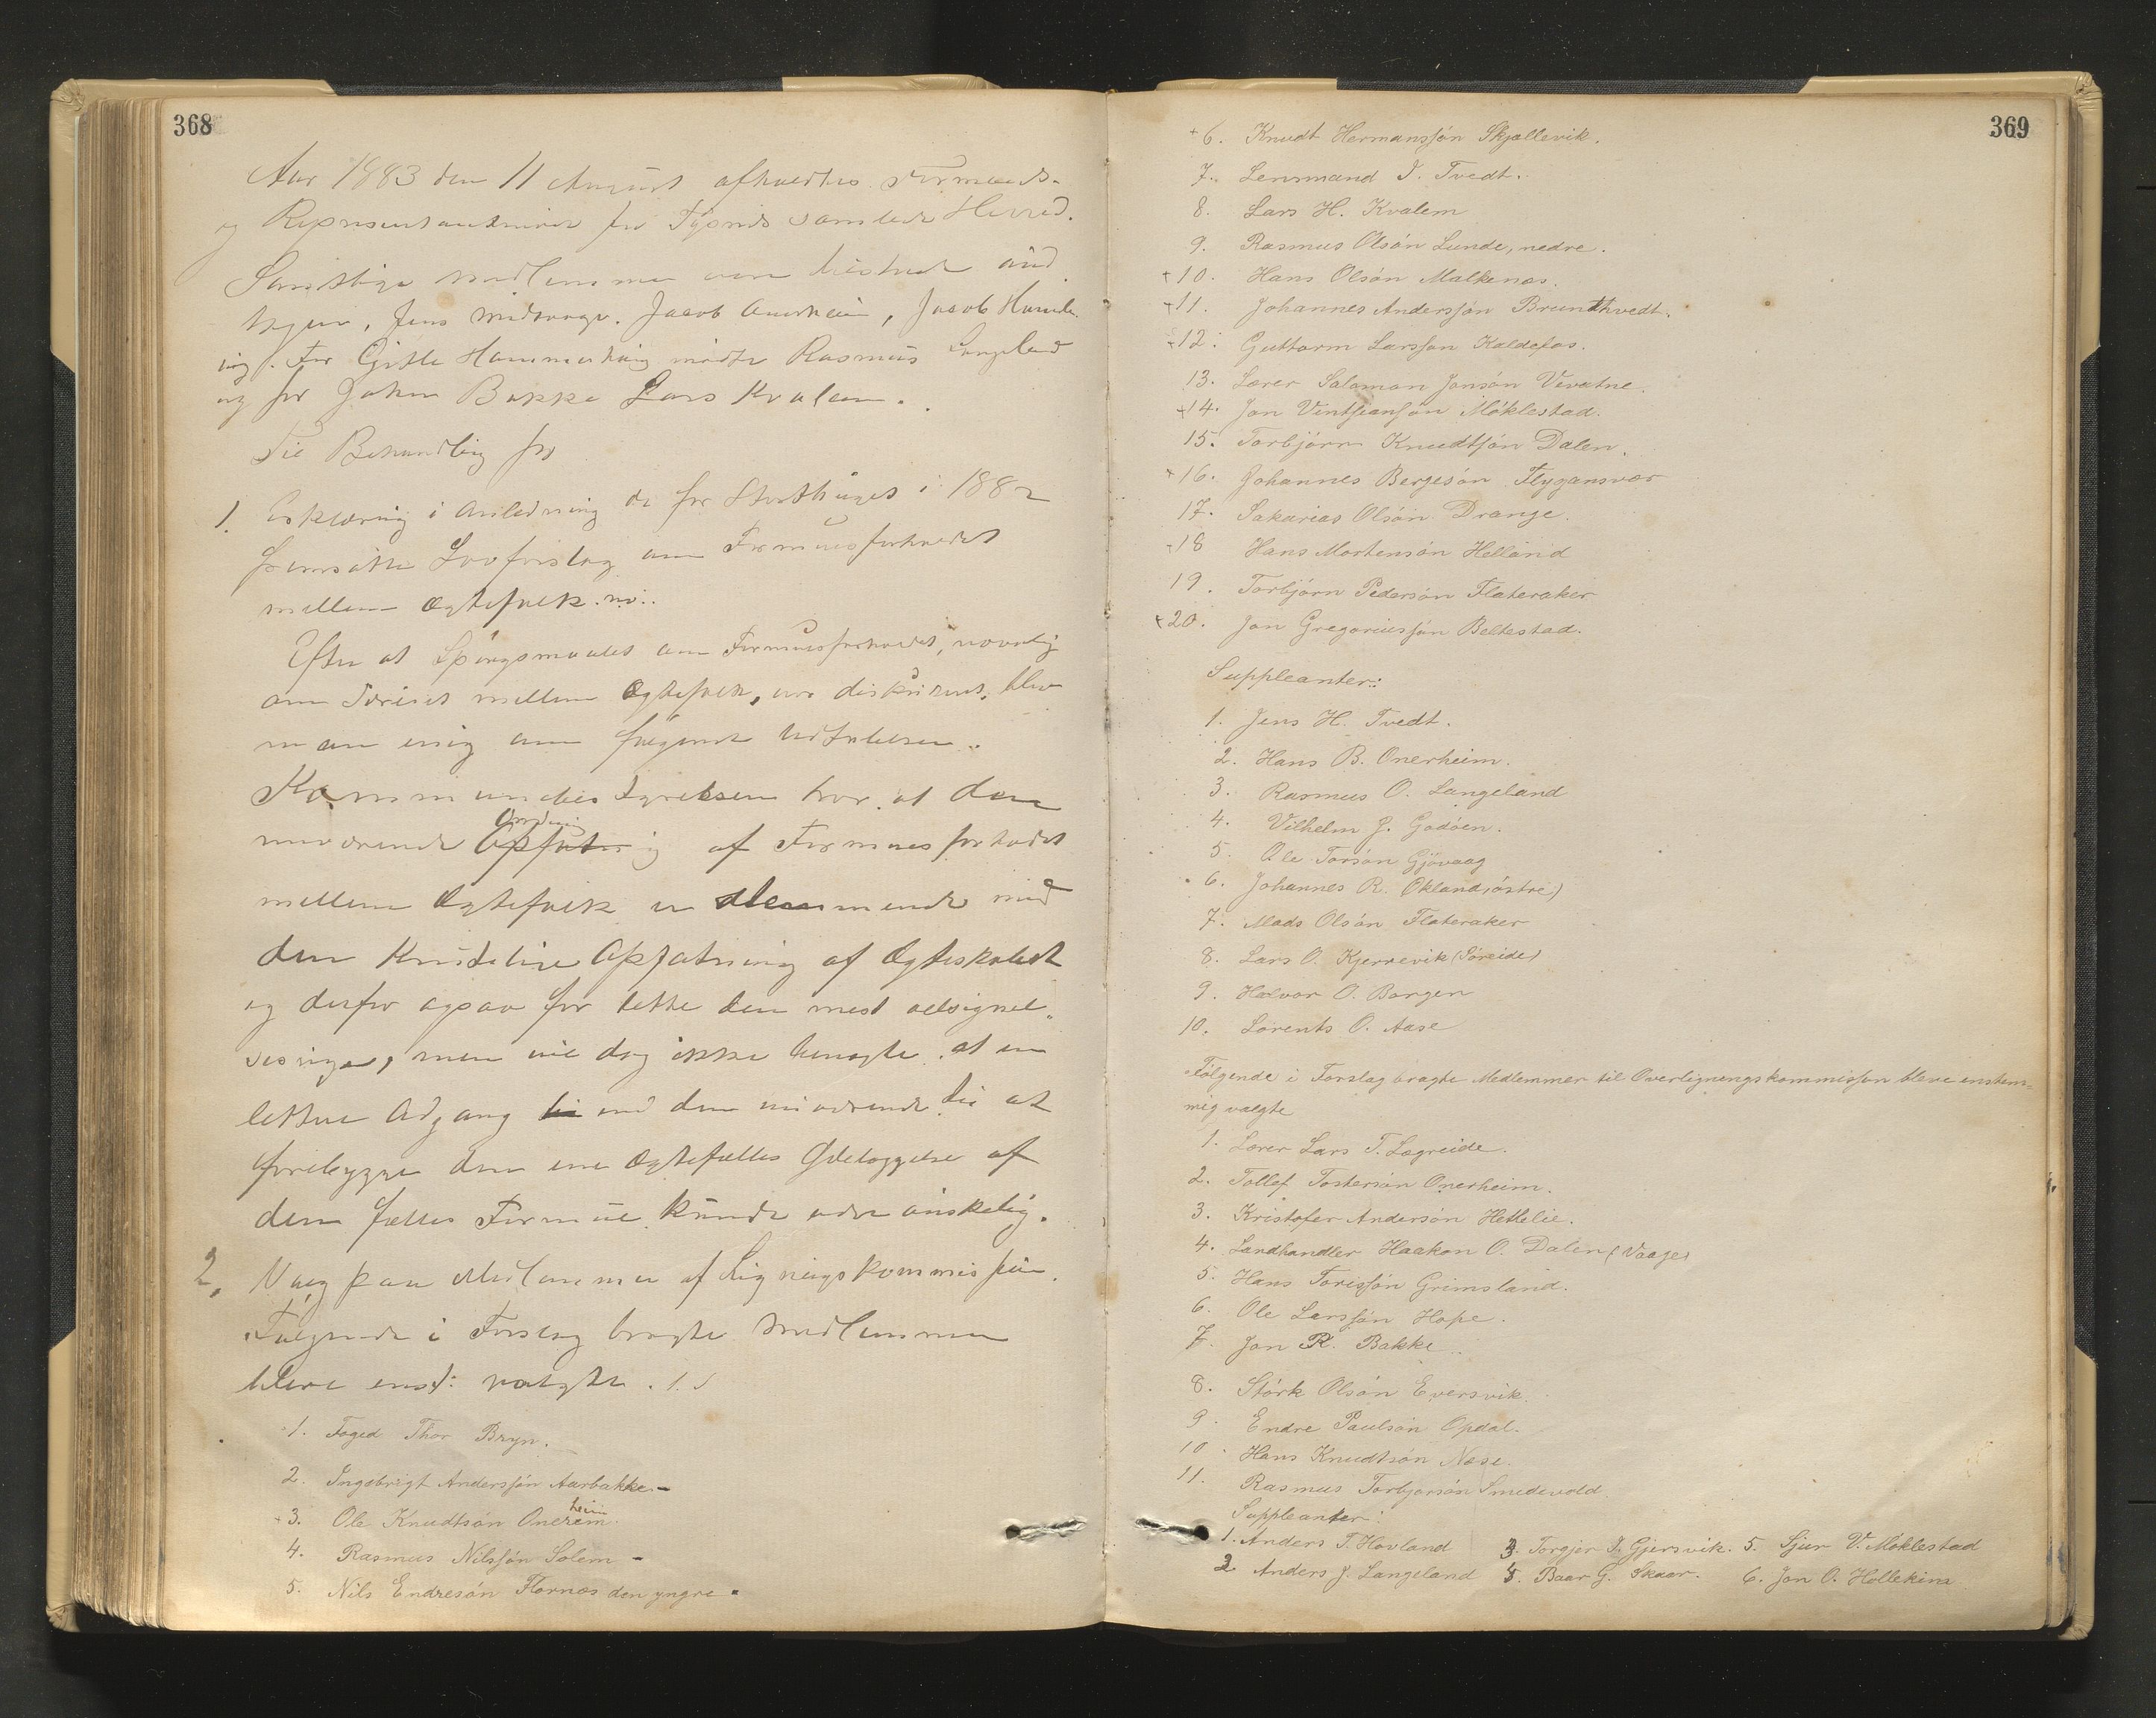 368
Aar 1883 den 11 August afholdtes Formands-
og Repræsentantmøde for Tysnæs samlede Herred.
Samtlige Medlemmer vare tilstede und
tagen, Jens Midvaage. Jacob Onerheim, Jacob Humle-
vig. For Gitle Hammerhaug mødte Rasmus Langeland
og for Johan Bakke Lars Kvalem.
Til Behandling for
1. Erklæring i Anledning de for Storthinget i 1882
fremsatte Lovforslag om Formuesforholdet
mellem Ægtefolk. m:.
Efter at Spørgsmaalet om Formuesforholdet, navnlig
om Særeiet mellem Ægtefolk, var diskuteret, blev
man enig om følgende Udtalelse.
Kommunebestyrelsen tror, at den
nuværende Opfatning Ordning af Formuesforholdet
mellem Ægtefolk er stemmende med
den Kristelige Opfatning af Ægteskabet
og derfor ogsaa for dette den mest velsignel-
sesrige, men vil dog ikke benægte, at en
lettere Adgang til end den nuværende til at
forebygge den ene Ægtefælles Ødelæggelse af
den fælles Formue kunde være ønskelig.
2. Valg paa Medlemmer af Ligningskommissjon.
Følgende i Forslag bragte Medlemmer
bleve enst: valgte.
1. Foged Thor Bryn.
2. Ingebrigt Anderssøn Aarbakke
3. Ole Knudtsøn Onerheim
4. Rasmus Nilssøn Solem
5. Nils Endresøn Flornæs den yngre
369
+6. Knudt Hermanssøn Skjællevik.
7. Lensmand I. Tvedt.
8. Lars H. Kvalem
9. Rasmus Olsøn Lunde, nedre.
+10. Hans Olsøn Malkenæs.
+11. Johannes Anderssøn Brunthvedt.
+12. Guttorm Larssøn Kaldefos.
13. Lærer Salamon Jonsøn Vevatne.
+14. Jon Vintsiansøn Møklestad.
15. Torbjørn Knudtsøn Dalen.
+16. Johannes Bergesøn Flygansvær
17. Sakarias Olsøn Drange.
+18 Hans Mortensøn Helland
19. Torbjørn Pedersøn Flateraker
+20. Jon Gregoriussøn Beltestad.
Suppleanter:
1. Jens H. Tvedt.
2. Hans B. Onerheim.
3. Rasmus O. Langeland
4. Vilhelm J. Godøen.
5. Ole Torsøn Gjøvaag
6. Johannes R. Økland (østre)
7. Mads Olsøn Flateraker
8. Lars O. Kjerrevik (Søreide)
9. Halvor O. Borgen
10. Lorents O. Aase
Følgende i Forslag bragte Medlemmer til Overligningskommissjon bleve enstem-
mig valgte
1. Lærer Lars T. Lagreide.
2. Tollef Tostersøn Onerheim.
3. Kristofer Andersøn Hettelie.
4. Landhandler Haakon O. Dalen (Vaage)
5. Hans Toressøn Grimsland.
6. Ole Larssøn Hope.
7. Jon R. Bakke.
8. Størk Olsøn Eversvik.
9. Endre Paulsøn Opdal.
10. Hans Knudtsøn Nese.
11. Rasmus Torbjørnsøn Smedevold.
Suppleanter:
1. Anders T. Hovland 3. Torgjer I. Gjersvik. 5. Sjur V. Møklestad
2. Anders J. Langeland 4. Baar G. Skaar. 6. Jon O. Hollekim